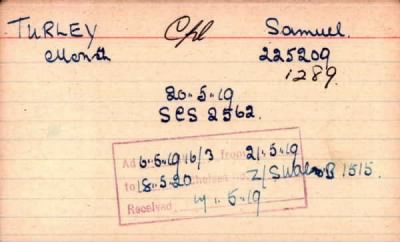 TURLEY Cpl Samuel.
225209
1289.
20.5.19
SCS 2562.
Ad 6.5.19 16/3 from 21.5.19
to 18.5.20 Z/S Wales B 1515.
Received 19.5.19